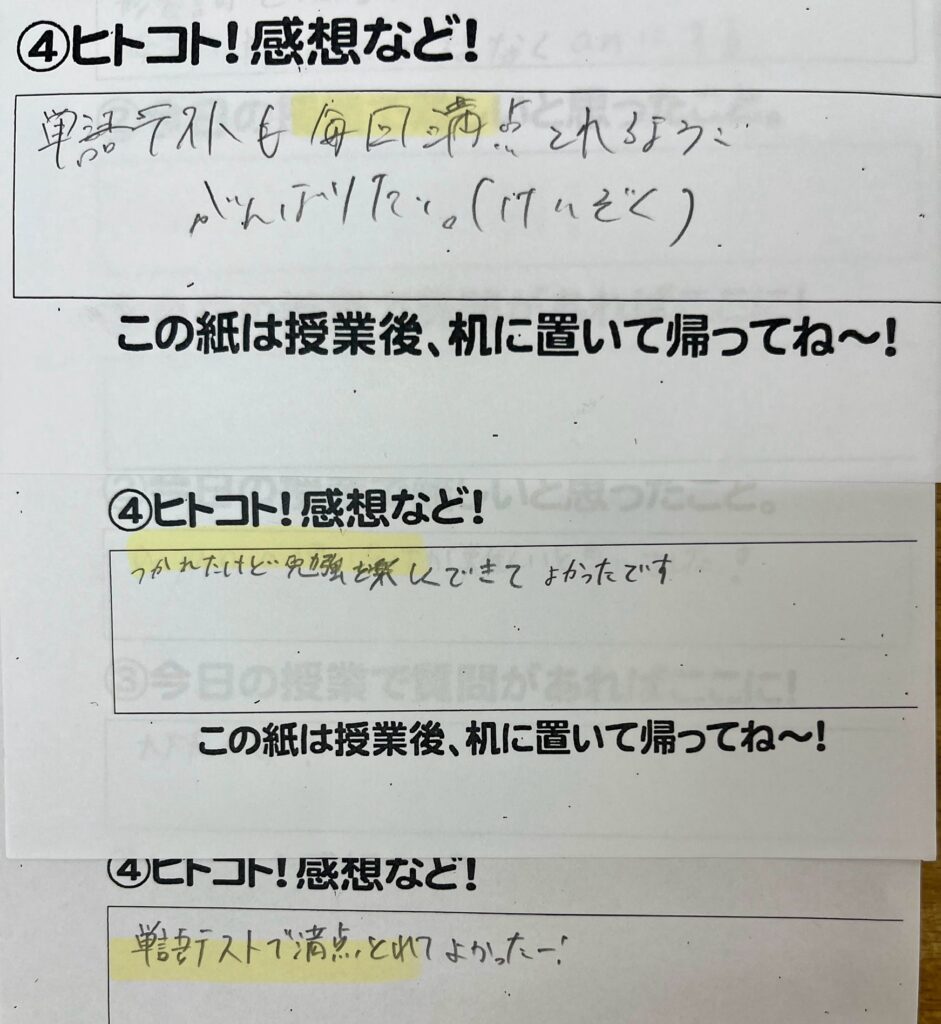 ④ヒトコト!感想など!
単語テストも毎回満点とれるように
がんばりたい。(けいぞく)
この紙は授業後、机に置いて帰ってね〜!
④ヒトコト!感想など!
つかれたけど勉強を楽しくできてよかったです
この紙は授業後、机に置いて帰ってね〜!
④ヒトコト!感想など!
単語テストで満点とれてよかったー!